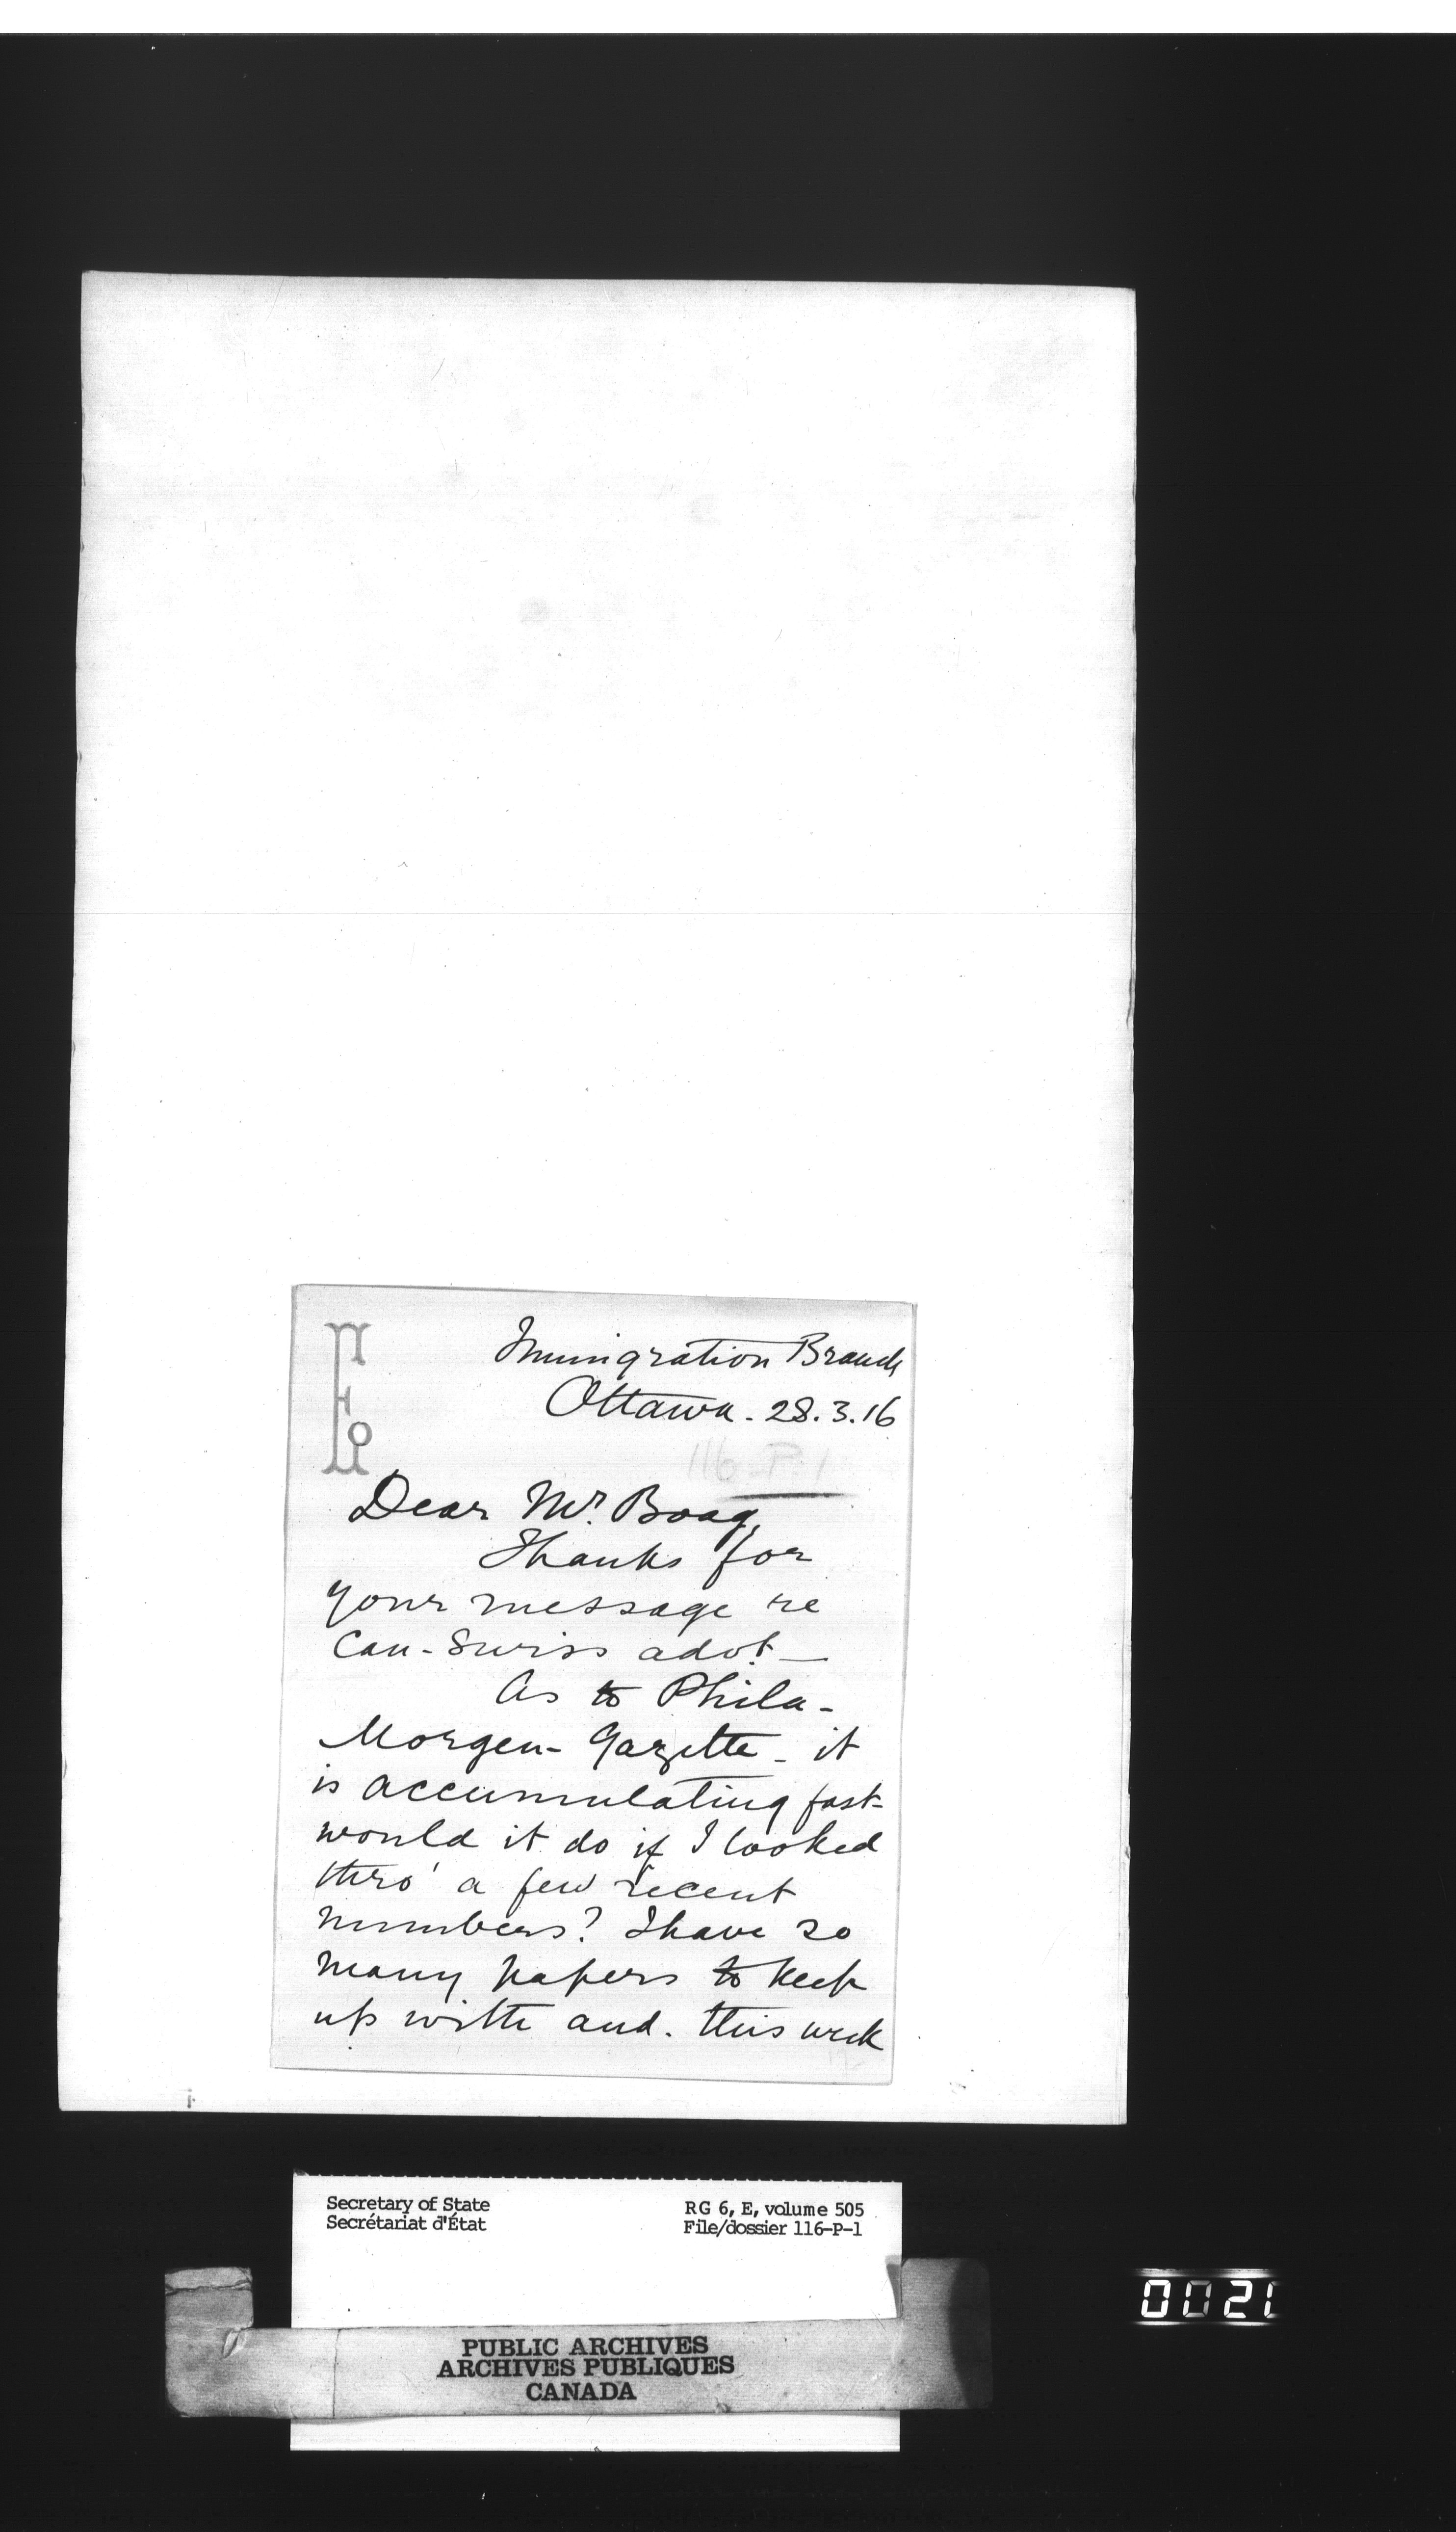 Immigration Branch
Ottawa. 28.3.16
116-P.1
Dear Mr. Boag,
Thanks for
your message re
Can-Swiss advt —
As to Phila-
Morgen- Gazette - it
is accumulating fast-
would it do if I looked
thro' a few recent
numbers? I have so
many papers to keep
up with and. this week
Secretary of State
Secrétariat d'État
RG 6, E, volume 505
File/dossier 116-P-1
PUBLIC ARCHIVES
ARCHIVES PUBLIQUES
CANADA
0021